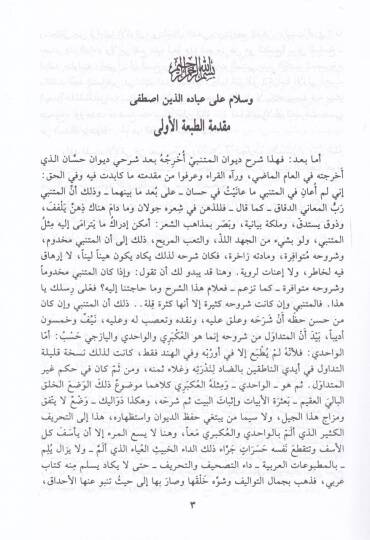 بسم الله الرحمن الرحيم
وسلام على عباده الذين اصطفى
مقدمة الطبعة الأولى
أما بعد: فهذا شرح ديوان المتنبيّ أُخرِجُه بعد شرحي ديوان حسَّان الذي
أخرجته في العام الماضي، ورآه القراء وعرفوا من مقدمته ما كابدت فيه وفي الحق:
إني لم أعانِ في المتنبي ما عانيْتُ في حسان ـ على بُعد ما بينهما ـ وذلك أنَّ المتنبي
رَبُّ المعاني الدقاق ـ كما قال ـ فللذهن في شِعره جولان وما دَامَ هناك ذِهنٌ يَلْقَفُ،
وذوق يستدقّ، وملكة بيانية، وبَصَر بمذاهب الشعر: أمكن إدراكُ ما يَترامَى إليه مِثلُ
المتنبي، ولو بشيء من الجهد اللذّ، والتعب المريح، ذلك إلى أن المتنبي مخدوم،
وشروحه مُتوافِرة، ومادته زاخرة، فكان شرحه لذلك يكاد يكون هيناً ليناً، لا إرهاق
فيه لخاطر، ولا إعنات لروية. وهنا قد يبدو لك أن تقول: وإذا كان المتنبي مخدوماً
وشروحه متوافرة ـ كما تزعم ـ فعلام هذا الشرح وما حاجتنا إليه؟ فعَلى رِسلك يا
هذا. فالمتنبي وإن كانت شروحه كثيرة إلا أنها كثرة قِلة.. ذلك أن المتنبي وإن كان
من حسن حظّه أنْ شَرَحَه وعلق عليه، ونقده وتعصب له وعليه، نَيِّفٌ وخمسون
أديباً، بَيْدَ أنَّ المتداوَل من شروحه إنما هو العُكْبَري والواحدي واليازجي حَسْبُ: أمَّا
الواحدي: فلأنهُ لمْ يُطبَع إلا في أوربَّة وفي الهند فقط، كانت لذلك نسخة قليلة
التداول في أيدي الناطقين بالضاد لِنُدْرَتِه وغلاء ثمنه، ومن ثَمَّ كان في حكم غير
المتداوَل. ثم هو ـ الواحدي ـ ومِثلهُ العُكبَري كلاهما موضوعٌ ذلك الوَضعَ الخلق
البالي العقيم ـ بعثرَة الأبيات وإثباتَ البيت ثم شرحَه، وهكذا دَوَاليك ـ وَضْعٌ لا يَتَّفق
ومزاج هذا الجيل، ولا سيما من يبتغي حفظ الديوان واستظهاره، هذا إلى التحريف
الكثير الذي ألمّ بالواحدي والعُكبري مَعاً، وهنا لا يسع المرءَ إلا أن يأسَفَ كل
الأسف وتتقطعَ نَفسه حَسَرَاتٍ جَرَّاء ذلك الداء الخبيث العَياء الذي ألمَّ ـ ولا يزال يُلِم
ـ بالمطبوعات العربية ـ داء التصحيف والتحريف ـ حتى لا يكاد يسلم مِنه كتاب
عربي، فذهب بجمال التواليف وشوَّه خَلْقَها وصارَ بها إلى حيثُ تنبو عنها الأحداق،
٣